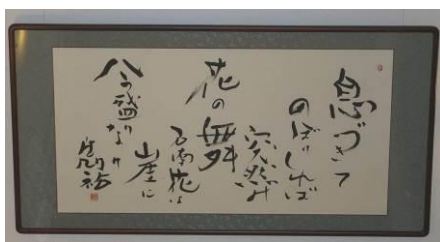 息づきて
のぼりしれば
突然の
花の舞
石南花は
崖に
今盛なり